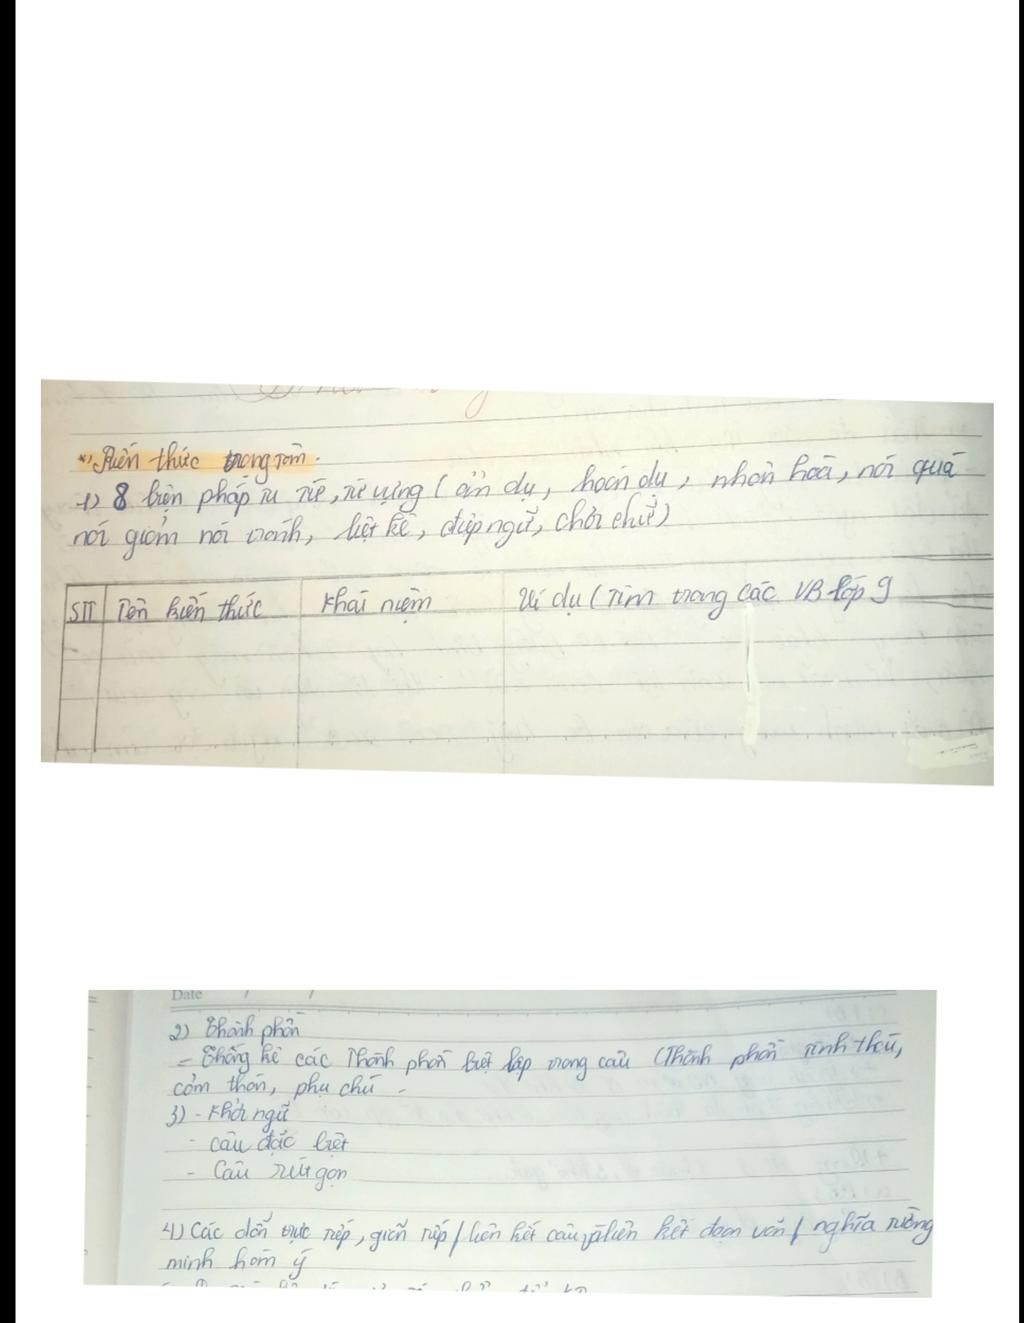 *) Kiến thức trọng tâm.
1) 8 biện pháp tu từ, từ vựng (ẩn dụ, hoán dụ, nhân hoá, nói quá
nói giảm nói tránh, liệt kê, điệp ngữ, chơi chữ)
STT Tên kiến thức Khái niệm Ví dụ (Tìm trong các VB lớp 9
Date / /
2) Thành phần
- Thống kê các Thành phần biệt lập trong câu (Thành phần tình thái,
cảm thán, phụ chú.
3) - Khởi ngữ
- câu đặc biệt
- Câu rút gọn
4) Các dẫn trực tiếp, gián tiếp / liên kết câu và liên kết đoạn văn / nghĩa tường
minh hàm ý